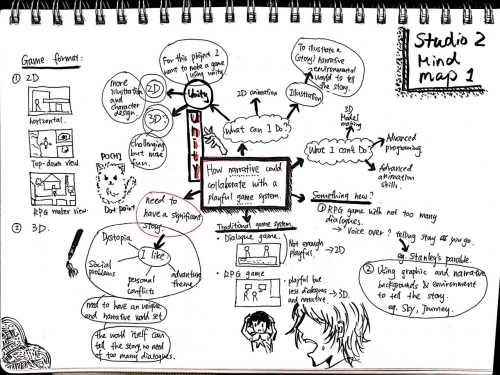 Studio 2
Mind
map 1
Game format:
① 2D
horizontal.
Top-down view
RPG maker view.
② 3D.
For this project I
want to make a game
using unity.
Unity
2D:
more
illustration
and
character
design.
3D:
challenging
but more
fun.
Unity
POCHI
Dot point
What can I Do?
2D animation
Illustration
To illustrate a
(story) narrative
environmental
world to tell
the story.
What I can't Do?
3D
Model
making
Advanced
programing.
Advanced
animation
skills.
How narrative could
collaborate with a
playful game system.
need to
have a significant
story.
I like
Dystopia
Social
problems
personal
conflicts
adventure
theme
need to have an unique
and narrative world set
the world itself can
tell the story, no need
of too many dialogues.
Traditional game system.
• Dialogue game.
Not enough
playful. → 2D
• RPG game
playful but
less dialogues
and narrative. → 3D.
Something new?
① RPG game with not too many
dialogues.
→ Voice over? telling story as you go.
eg. Stanley's parable.
② Using graphic and narrative
backgrounds & environment
to tell the story.
eg. Sky, Journey.